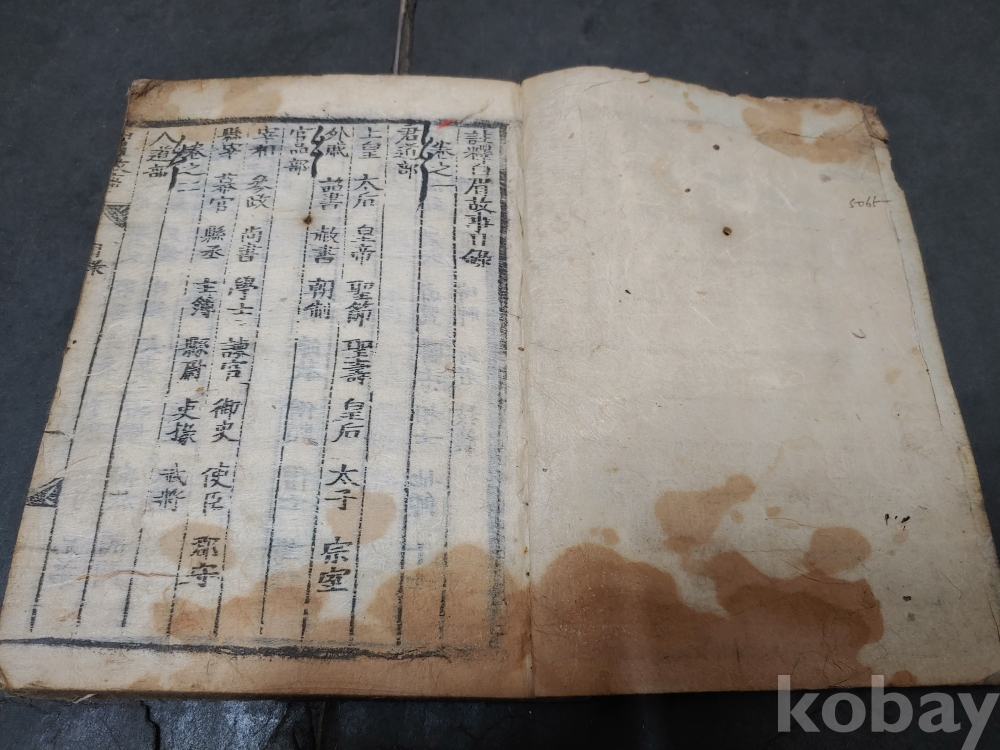 註釋白眉故事目錄
卷之一
君道部
上皇 太后 皇帝 聖節 聖壽 皇后 太子 宗室
外戚 詔書 赦書 朝制
官品部
宰相 參政 尚書 學士 諫官 御史 使臣 郡守
縣宰 幕官 縣丞 主簿 縣尉 吏掾 武將
卷之二
人道部
目錄
5065
kobay